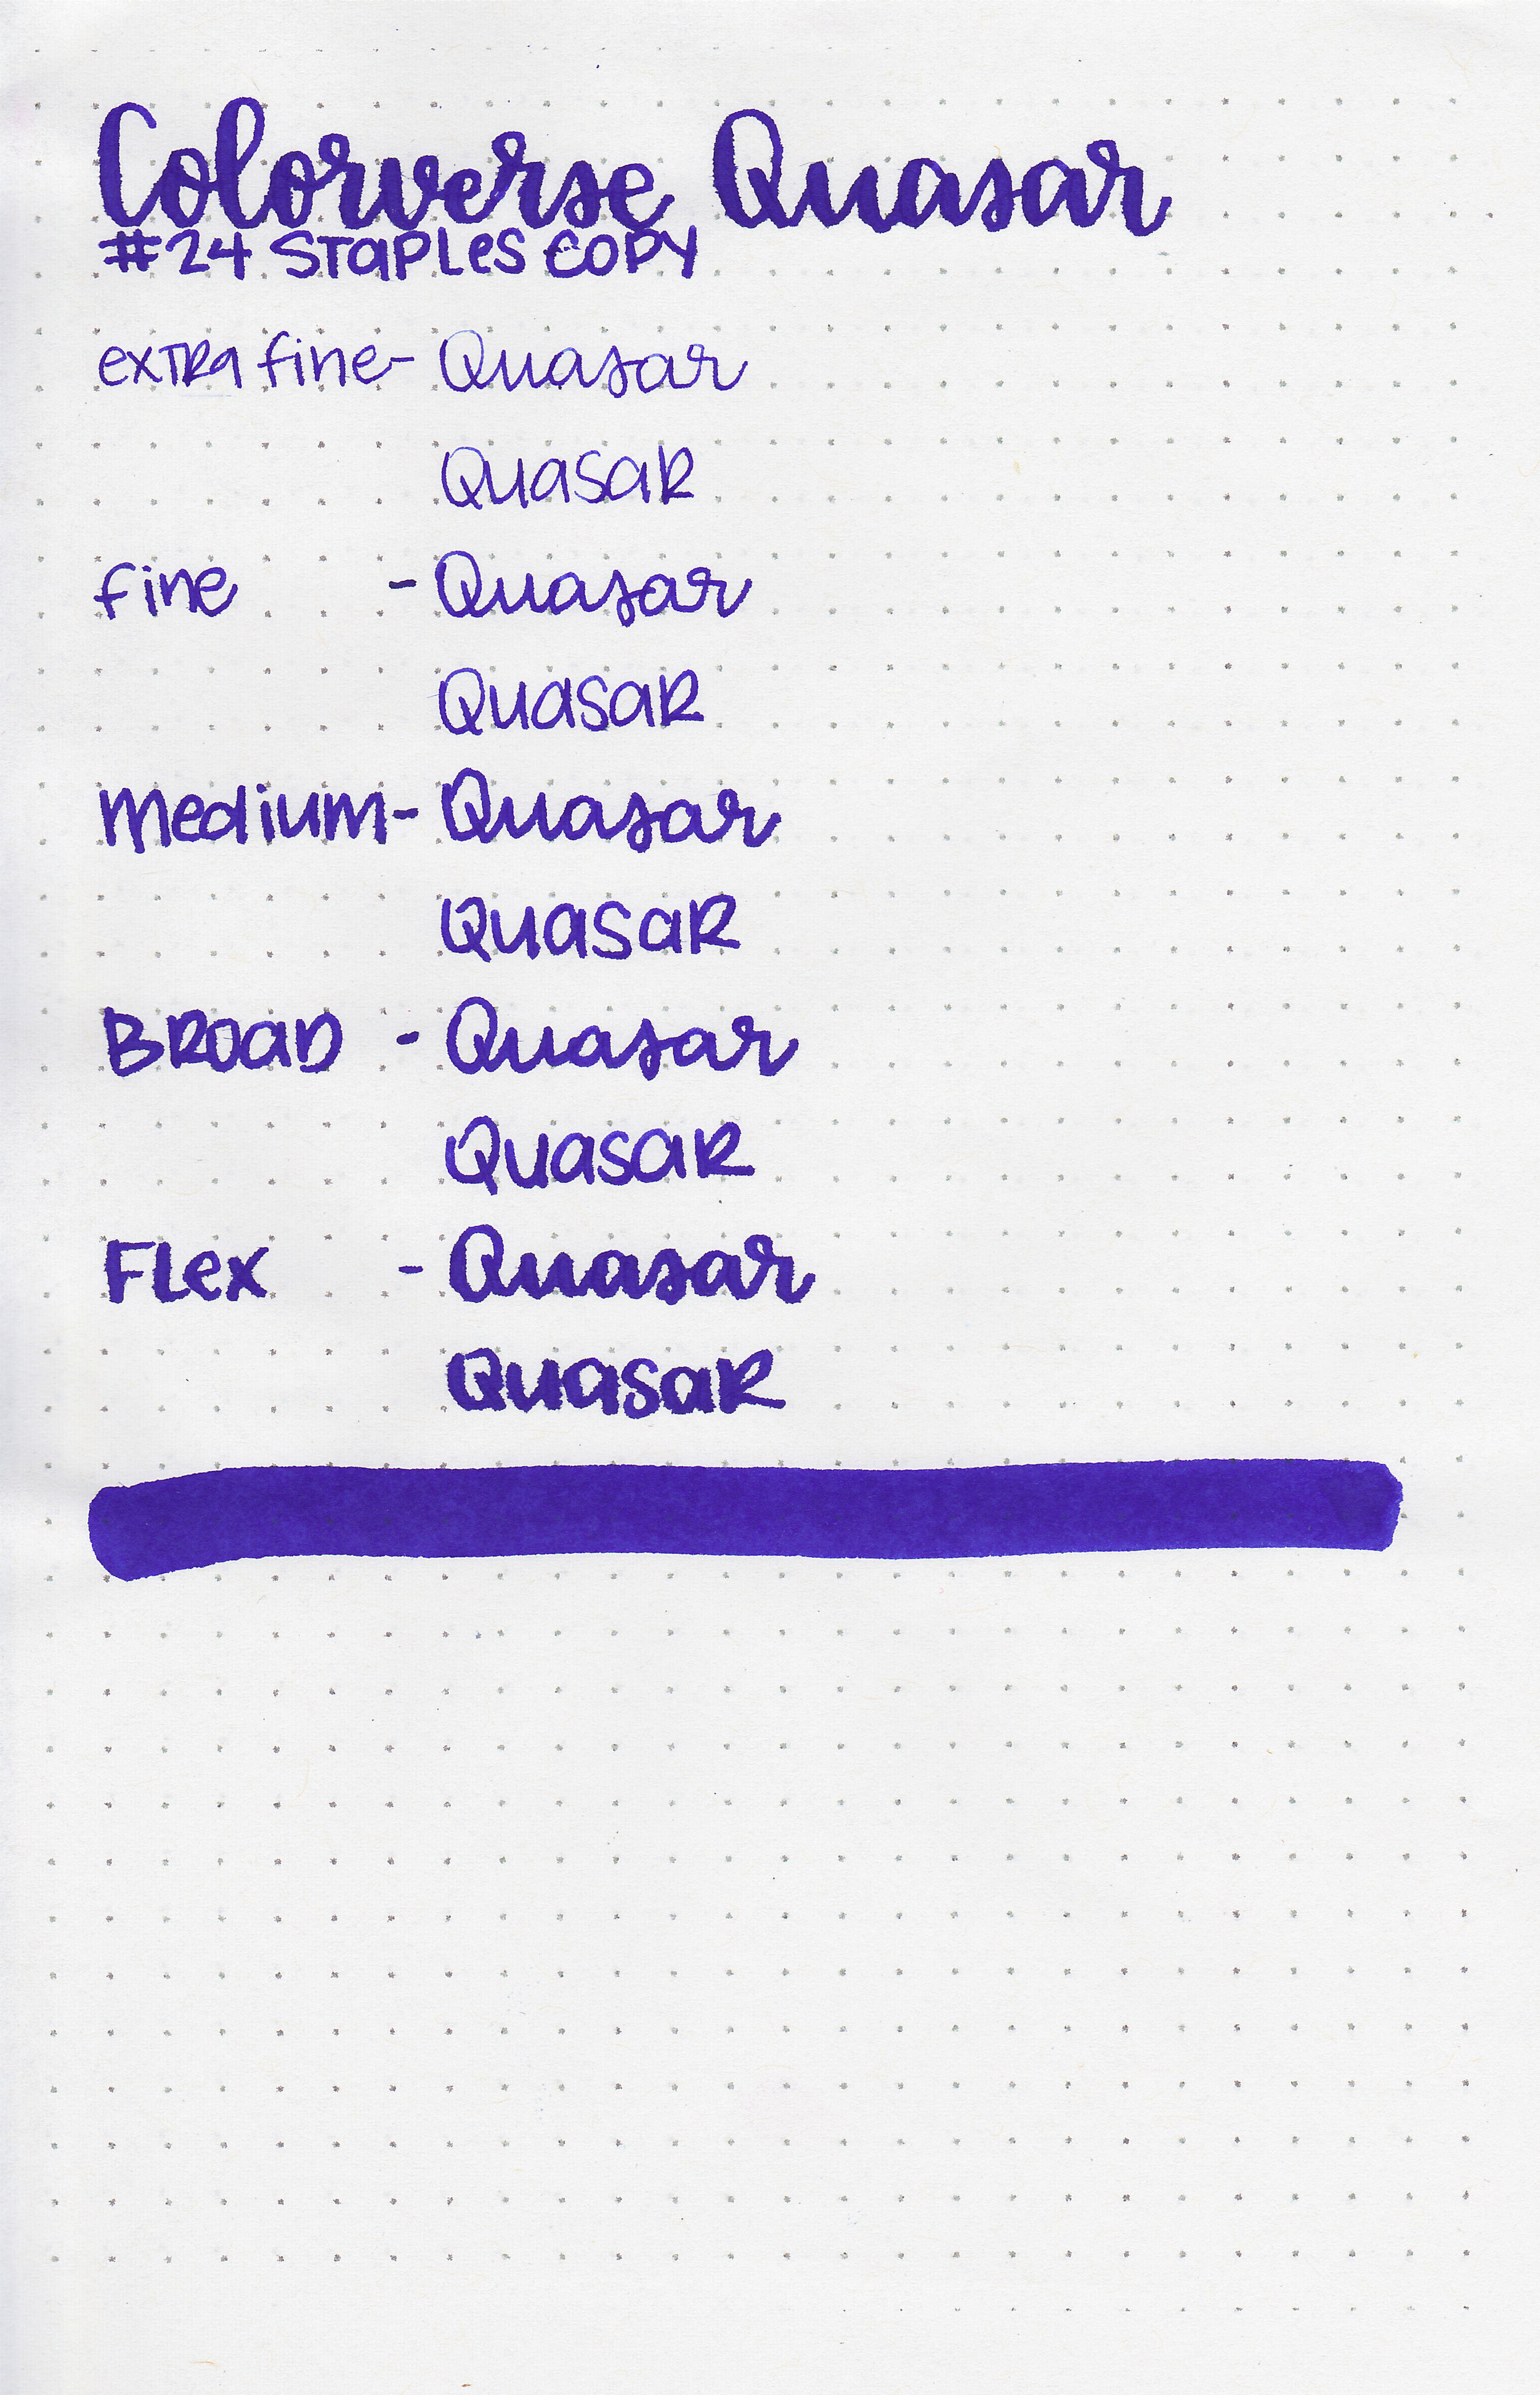 Colorverse Quasar
#24 Staples Copy
extra fine - Quasar
Quasar
fine - Quasar
Quasar
Medium - Quasar
Quasar
Broad - Quasar
Quasar
Flex - Quasar
Quasar